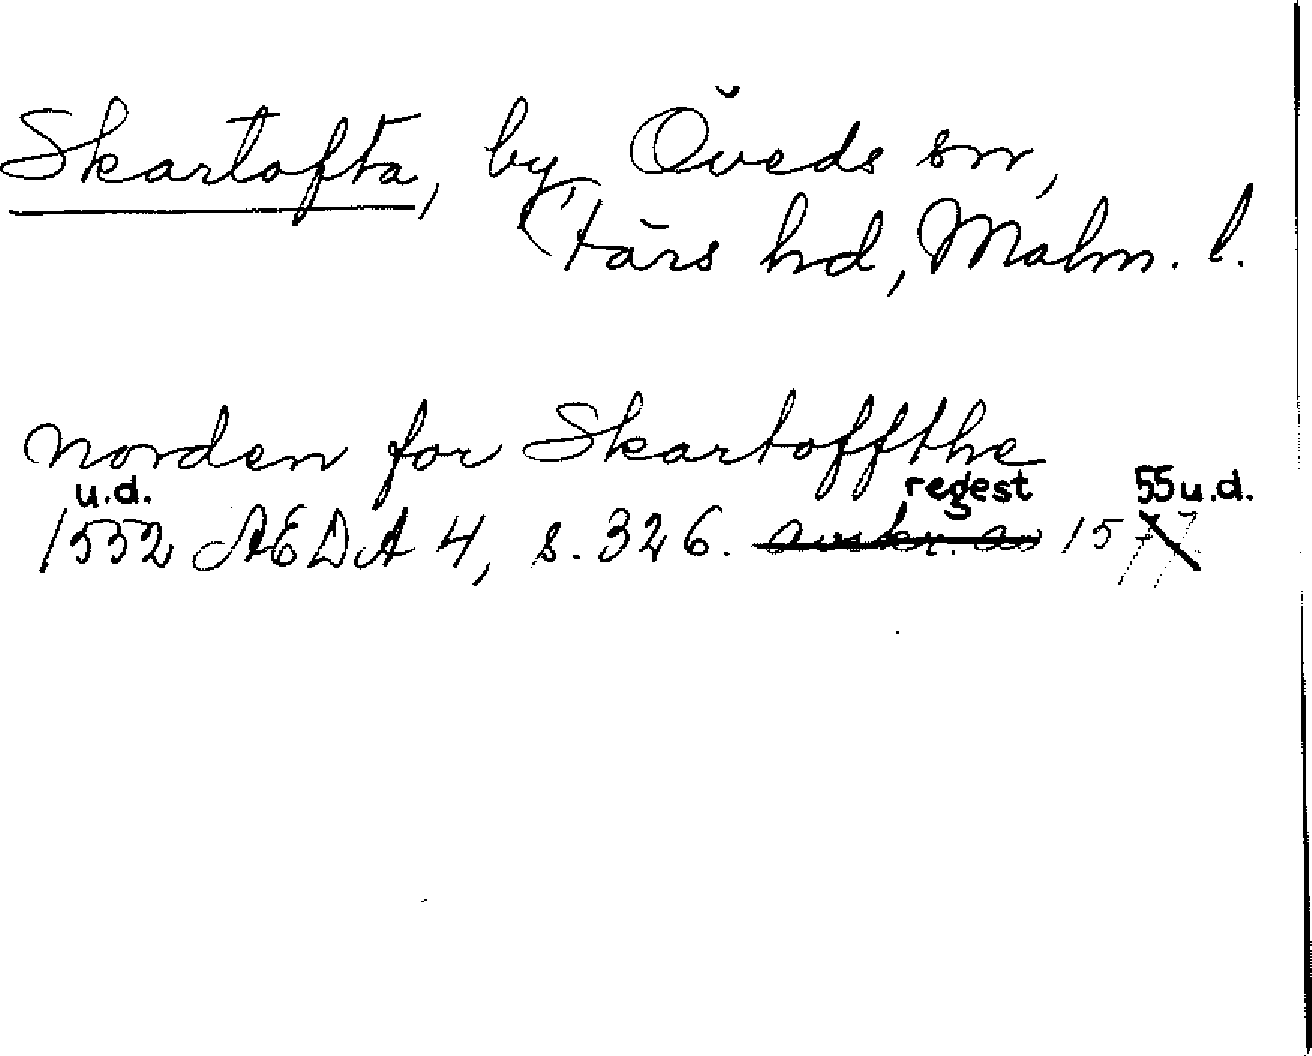 Skartofta, by Öveds sn,
Färs hd, Malm. l.
norden for Skartoffthe
u.d. regest 55 u.d.
1552 AEDA 4, s. 326. avskr. av 1577